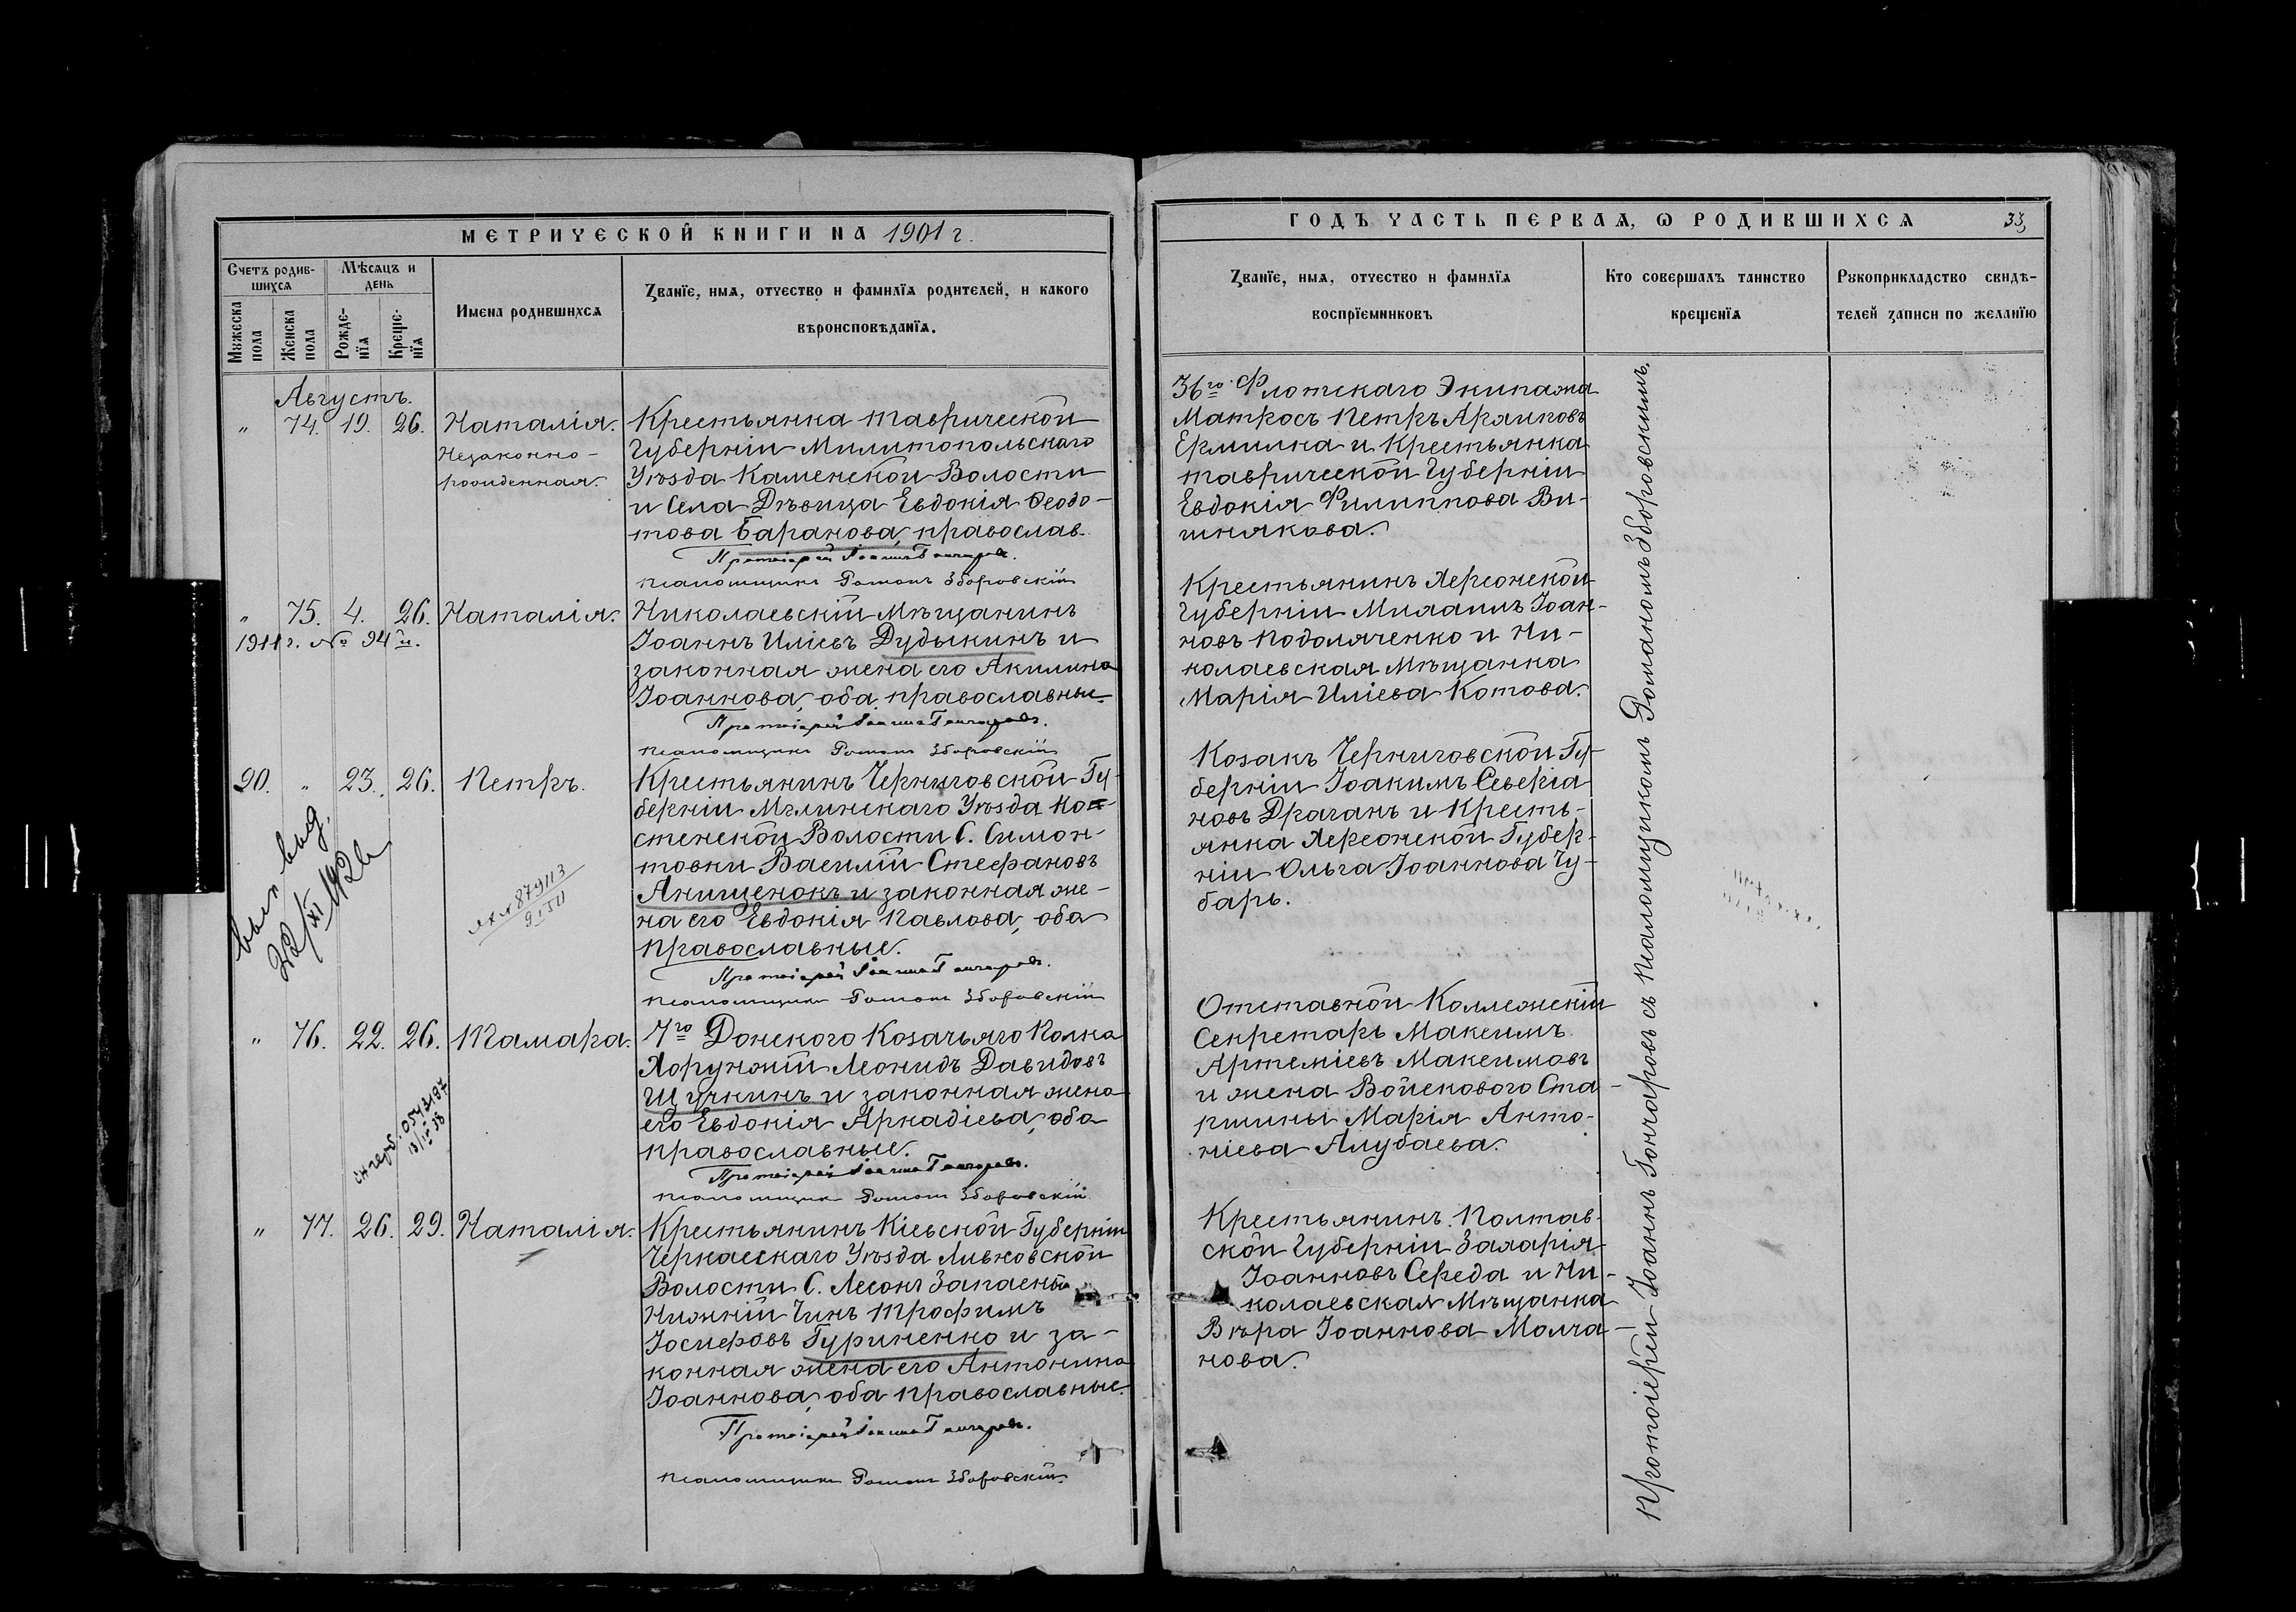 МЕТРИЧЕСКОЙ КНИГИ НА 1901 г.
Счетъ родив-
шихся
Мѣсяцъ и
день
Мужеска
пола
Женска
пола
Рожде-
нїя
Креще-
нїя
Имена родившихся
Званїе, имя, отчество и фамилїя родителей, и какого
вѣроисповѣданїя.
Августъ.
" 74. 19. 26. Наталія.
Незаконно-
рожденная.
Крестьянка Таврической
Губерніи Милитопольскаго
Уѣзда Каменской Волости
и Села Дѣвица Евдокія Ѳеодо-
това Баранова, православ.
Протоіерей Іоаннъ Гончаровъ.
Псаломщикъ Романъ Зборовскій
" 75. 4. 26. Наталія.
1911 г. № 94
Николаевскій Мѣщанинъ
Іоаннъ Иліевъ Дудыкинъ и
законная жена его Акилина
Іоаннова, оба православные.
Протоіерей Іоаннъ Гончаровъ.
Псаломщикъ Романъ Зборовскій
20. " 23. 26. Петръ.
вып выд.
Крестьянинъ Черниговской Гу-
берніи Мглинскаго Уѣзда Ко-
стенской Волости С. Симон-
товки Василій Стефановъ
Анищенокъ и законная же-
на его Евдокія Павлова, оба
православные.
Протоіерей Іоаннъ Гончаровъ.
Псаломщикъ Романъ Зборовскій
" 76. 22. 26. Тамара.
7го Донского Козачьяго Полка
Хорунжій Леонидъ Давидовъ
Щучкинъ и законная жена
его Евдокія Аркадіева, оба
православные.
Протоіерей Іоаннъ Гончаровъ.
Псаломщикъ Романъ Зборовскій
" 77. 26. 29. Наталія.
Крестьянинъ Кіевской Губерніи
Черкасскаго Уѣзда
Волости С. Лесокъ Запасной
Нижній Чинъ Трофимъ
Іосифовъ Гуриненко и за-
конная жена его Антонина
Іоаннова, оба православные.
Протоіерей Іоаннъ Гончаровъ.
Псаломщикъ Романъ Зборовскій
ГОДЪ ЧАСТЬ ПЕРВАЯ, Ѡ РОДИВШИХСЯ 33
Званїе, имя, отчество и фамилїя
воспрїемниковъ
Кто совершалъ таинство
крещенїя
Рукоприкладство свидѣ-
телей записи по желанїю
36го Флотскаго Экипажа
Матросъ Петръ Архиповъ
Ермилка и Крестьянка
Таврической Губерніи
Евдокія Филиппова Ви-
шнякова.
Крестьянинъ Херсонской
Губерніи Михаилъ Іоан-
новъ Подоляченко и Ни-
колаевская Мѣщанка
Марія Иліева Котова.
Козакъ Черниговской Гу-
берніи Іоакимъ Северіа
новъ Драганъ и Кресть-
янка Херсонской Губер-
ніи Ольга Іоаннова Чу-
барь.
Отставной Коллежскій
Секретарь Максимъ
Артеміевъ Максимовъ
и жена Войскового Ста-
ршины Марія Анто-
ніева Алубаева.
Крестьянинъ Полтав-
ской Губерніи Захарія
Іоанновъ Середа и Ни-
колаевская Мѣщанка
Вѣра Іоаннова Молча-
нова.
Протоіерей Іоаннъ Гончаровъ съ Псаломщикомъ Романомъ Зборовскимъ.